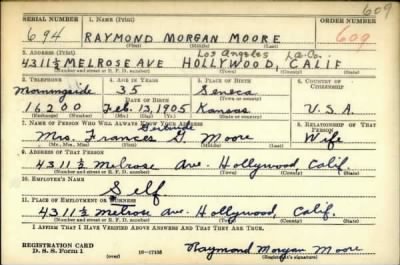 609
SERIAL NUMBER 1. NAME (Print) ORDER NUMBER
694 RAYMOND MORGAN MOORE 609
(First) (Middle) (Last)
2. ADDRESS (Print) Los Angeles L.A. Co.
4311½ MELROSE AVE HOLLYWOOD, CALIF
(Number and street or R. F. D. number) (Town) (County) (State)
3. TELEPHONE 4. AGE IN YEARS 5. PLACE OF BIRTH 6. COUNTRY OF CITIZENSHIP
Morningside 35 Seneca
DATE OF BIRTH
16200 Feb. 13, 1905 Kansas U.S.A.
(Exchange) (Number) (Mo.) (Day) (Yr.) (State or country)
7. NAME OF PERSON WHO WILL ALWAYS KNOW YOUR ADDRESS 8. RELATIONSHIP OF THAT PERSON
Gertrude
Mrs. Frances G. Moore Wife
(Mr., Mrs., Miss) (First) (Middle) (Last)
9. ADDRESS OF THAT PERSON
4311½ Melrose Ave. Hollywood, Calif.
(Number and street or R. F. D. number) (Town) (County) (State)
10. EMPLOYER'S NAME
Self
11. PLACE OF EMPLOYMENT OR BUSINESS
4311½ Melrose Ave. Hollywood, Calif.
(Number and street or R. F. D. number) (Town) (County) (State)
I AFFIRM THAT I HAVE VERIFIED ABOVE ANSWERS AND THAT THEY ARE TRUE.
REGISTRATION CARD
D. S. S. Form 1 (over) 16—17105 Raymond Morgan Moore
(Registrant's signature)